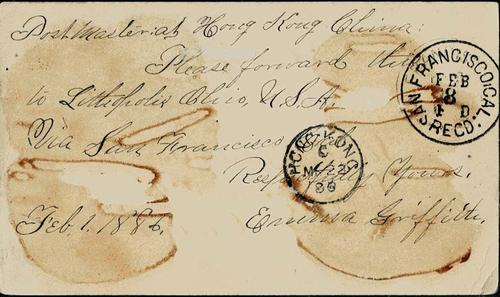 Postmaster at Hong Kong China:
Please forward this
to Lithopolis Ohio, U.S.A.
Via San Francisco
Respectfully Yours.
Feb. 1. 1886. Emma Griffith.
SAN FRANCISCO, CAL.
FEB
8
REC'D.
HONG KONG
C
MR 22
86